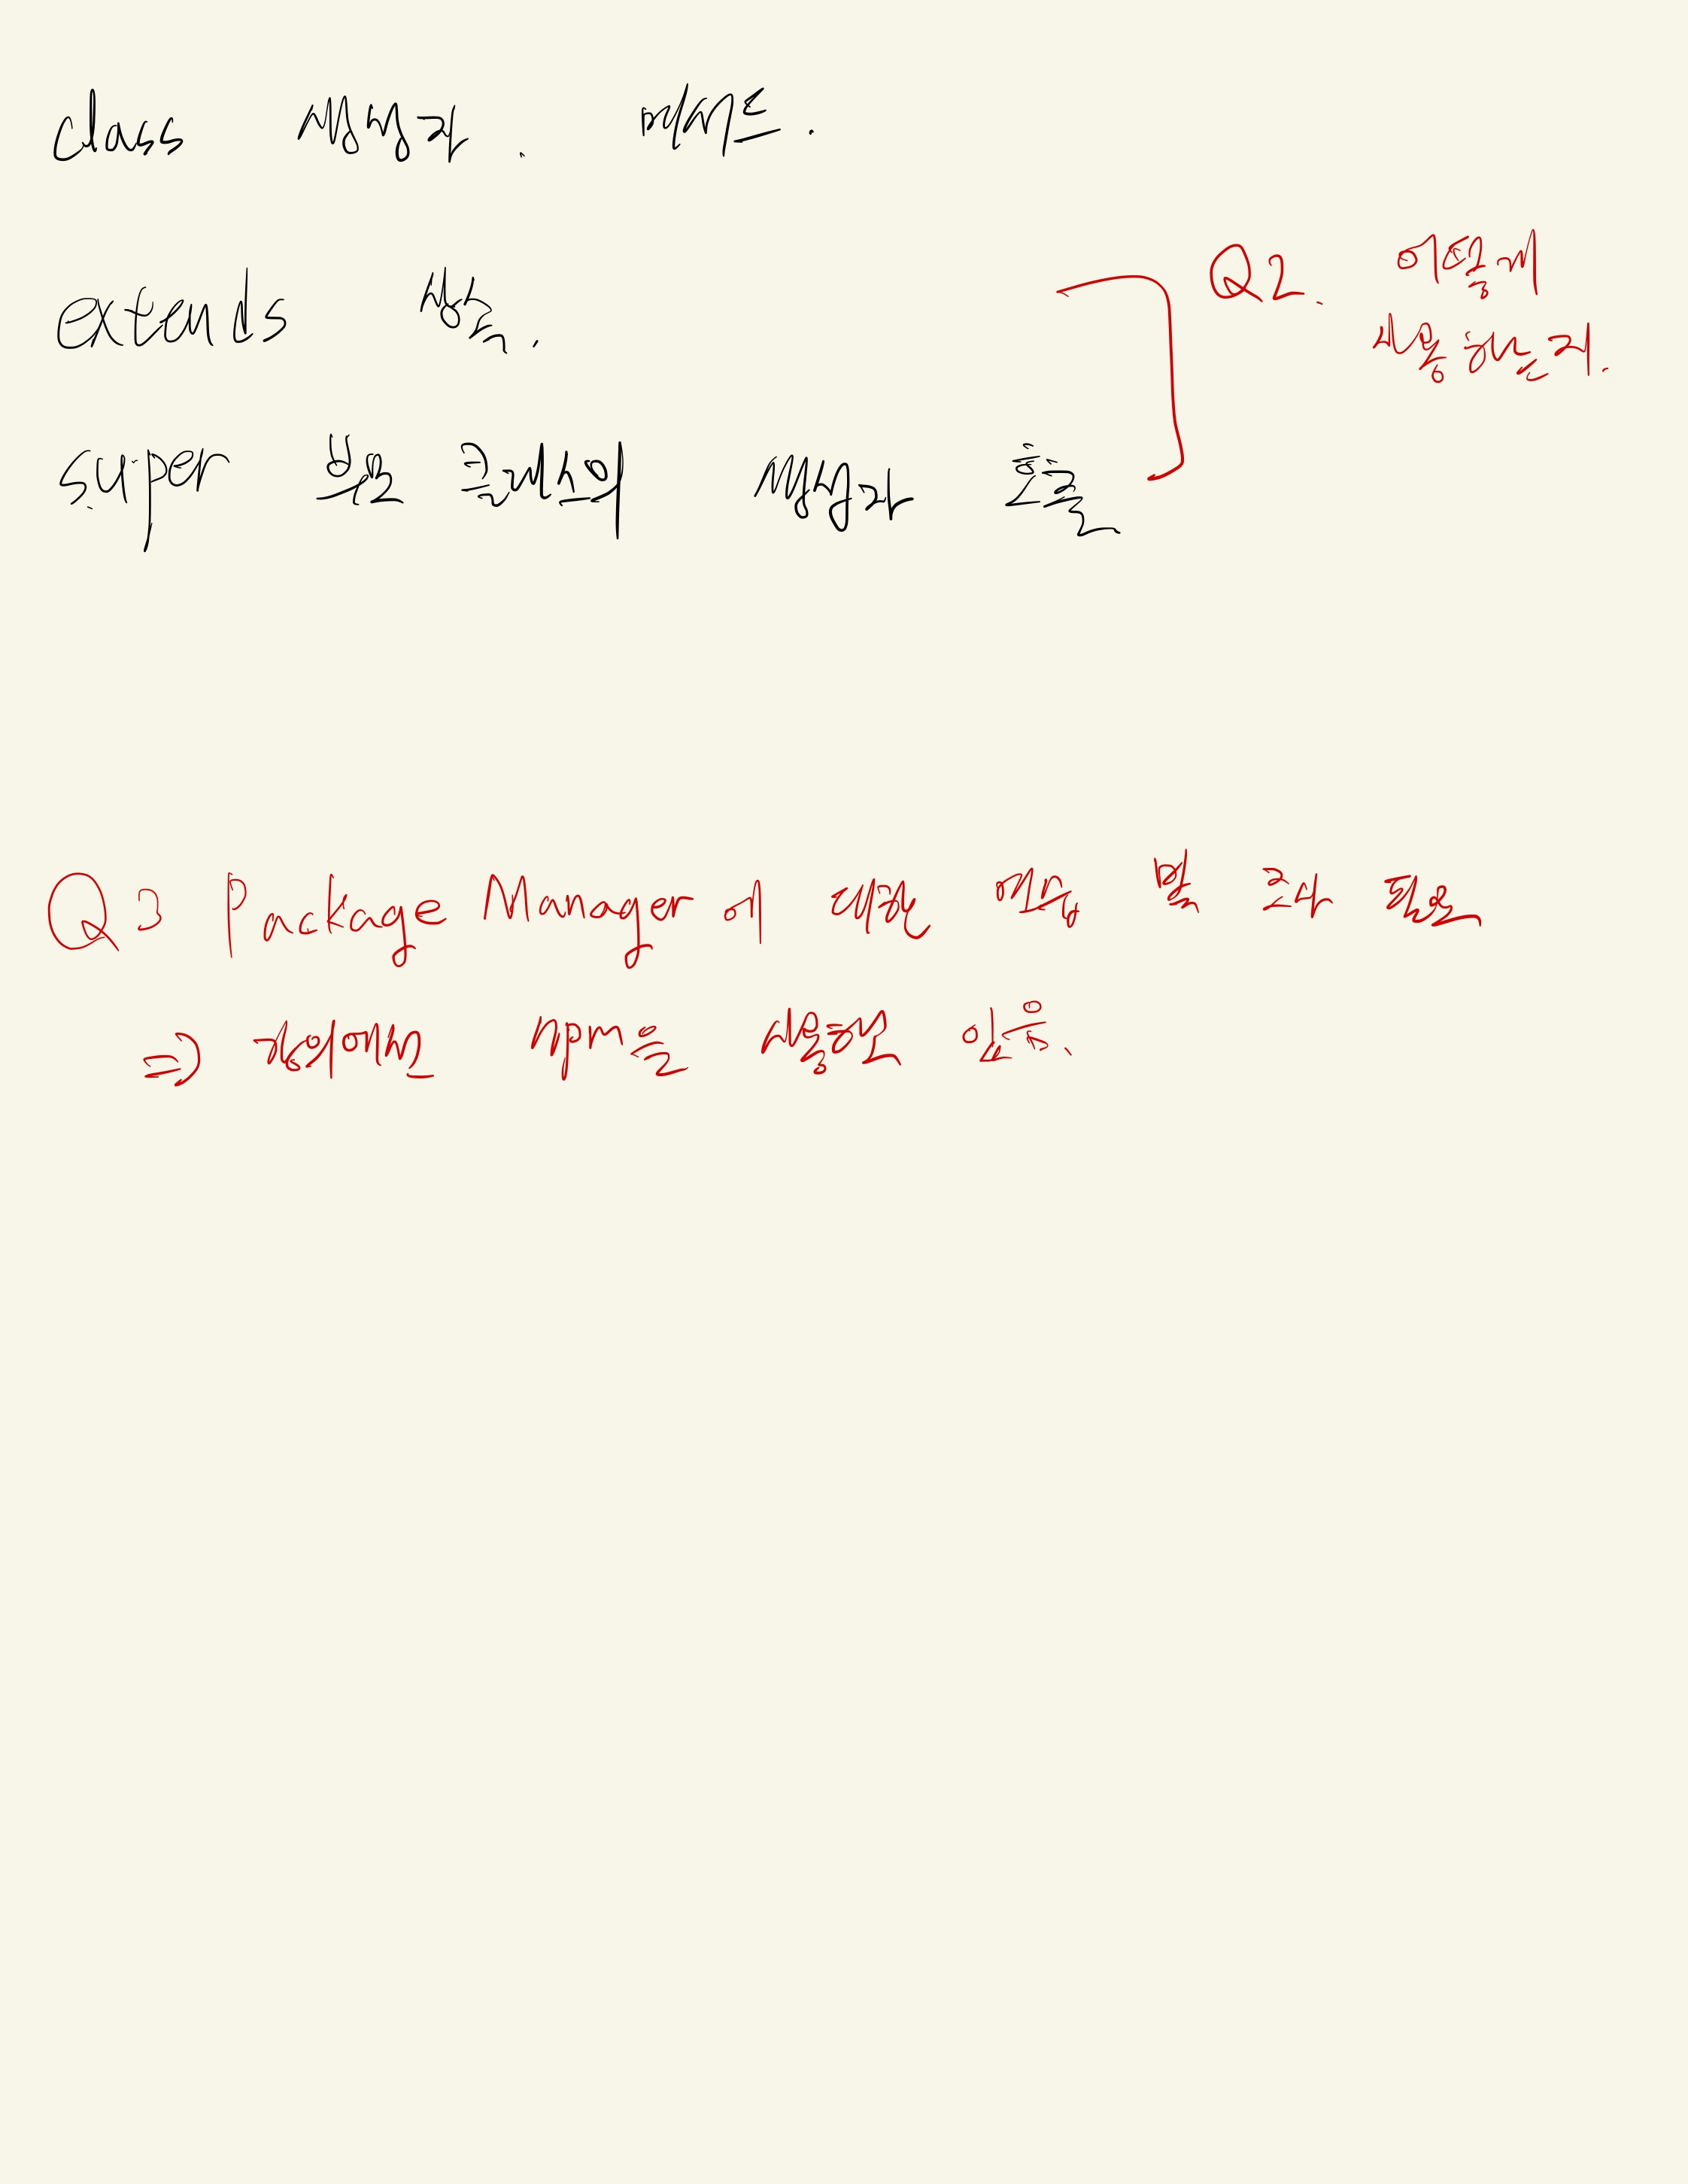 class 생성자. 메서드.
extends 상속.
Q2. 어떻게
사용하는지.
super 부모 클래스의 생성자 호출
Q3 Package Manager에 대한 연습 및 조사 필요
⇒ npm을 사용하고 있음.